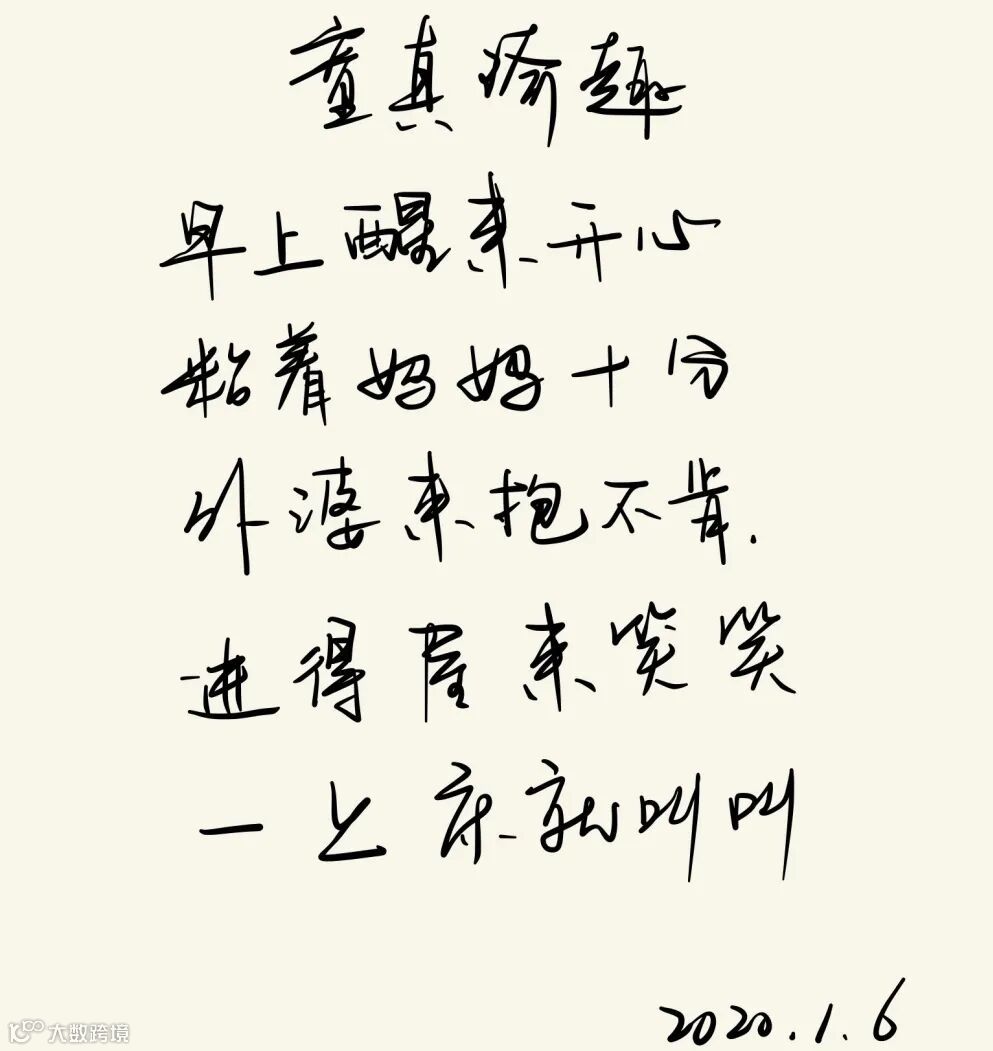 童真痴趣
早上醒来开心
粘着妈妈十分
外婆来抱不肯.
进得屋来笑笑
一上床就叫叫
2020.1.6
大数跨境